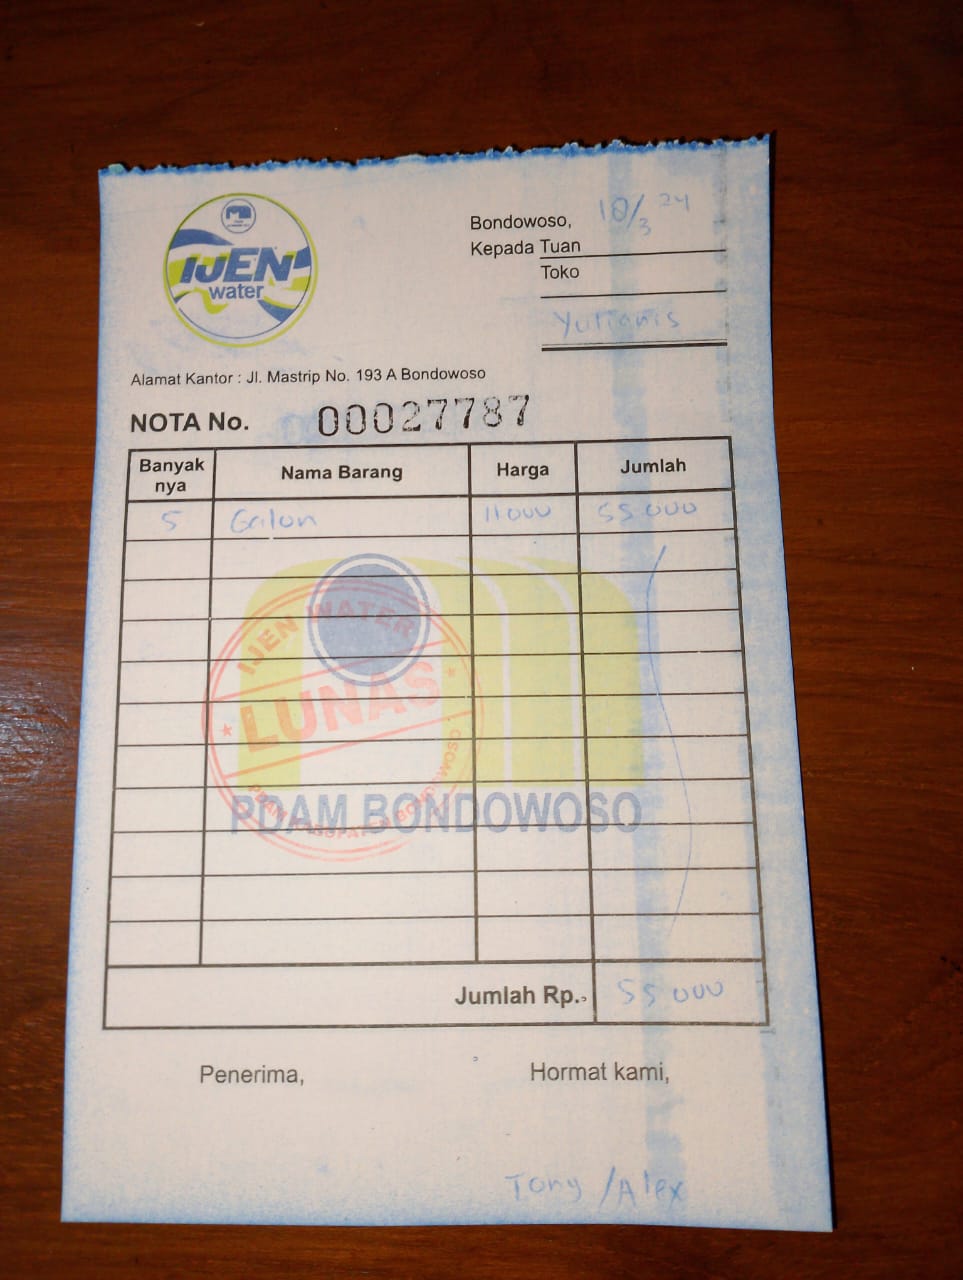 IJEN
water
Bondowoso, 18/3 24
Kepada Tuan
Toko
Yulianis
Alamat Kantor : Jl. Mastrip No. 193 A Bondowoso
NOTA No. 00027787
Banyak nya Nama Barang Harga Jumlah
5 Galon 11000 55 000
IJEN WATER
LUNAS
PDAM KABUPATEN BONDOWOSO
PDAM BONDOWOSO
Jumlah Rp. 55 000
Penerima, Hormat kami,
Tony / Alex